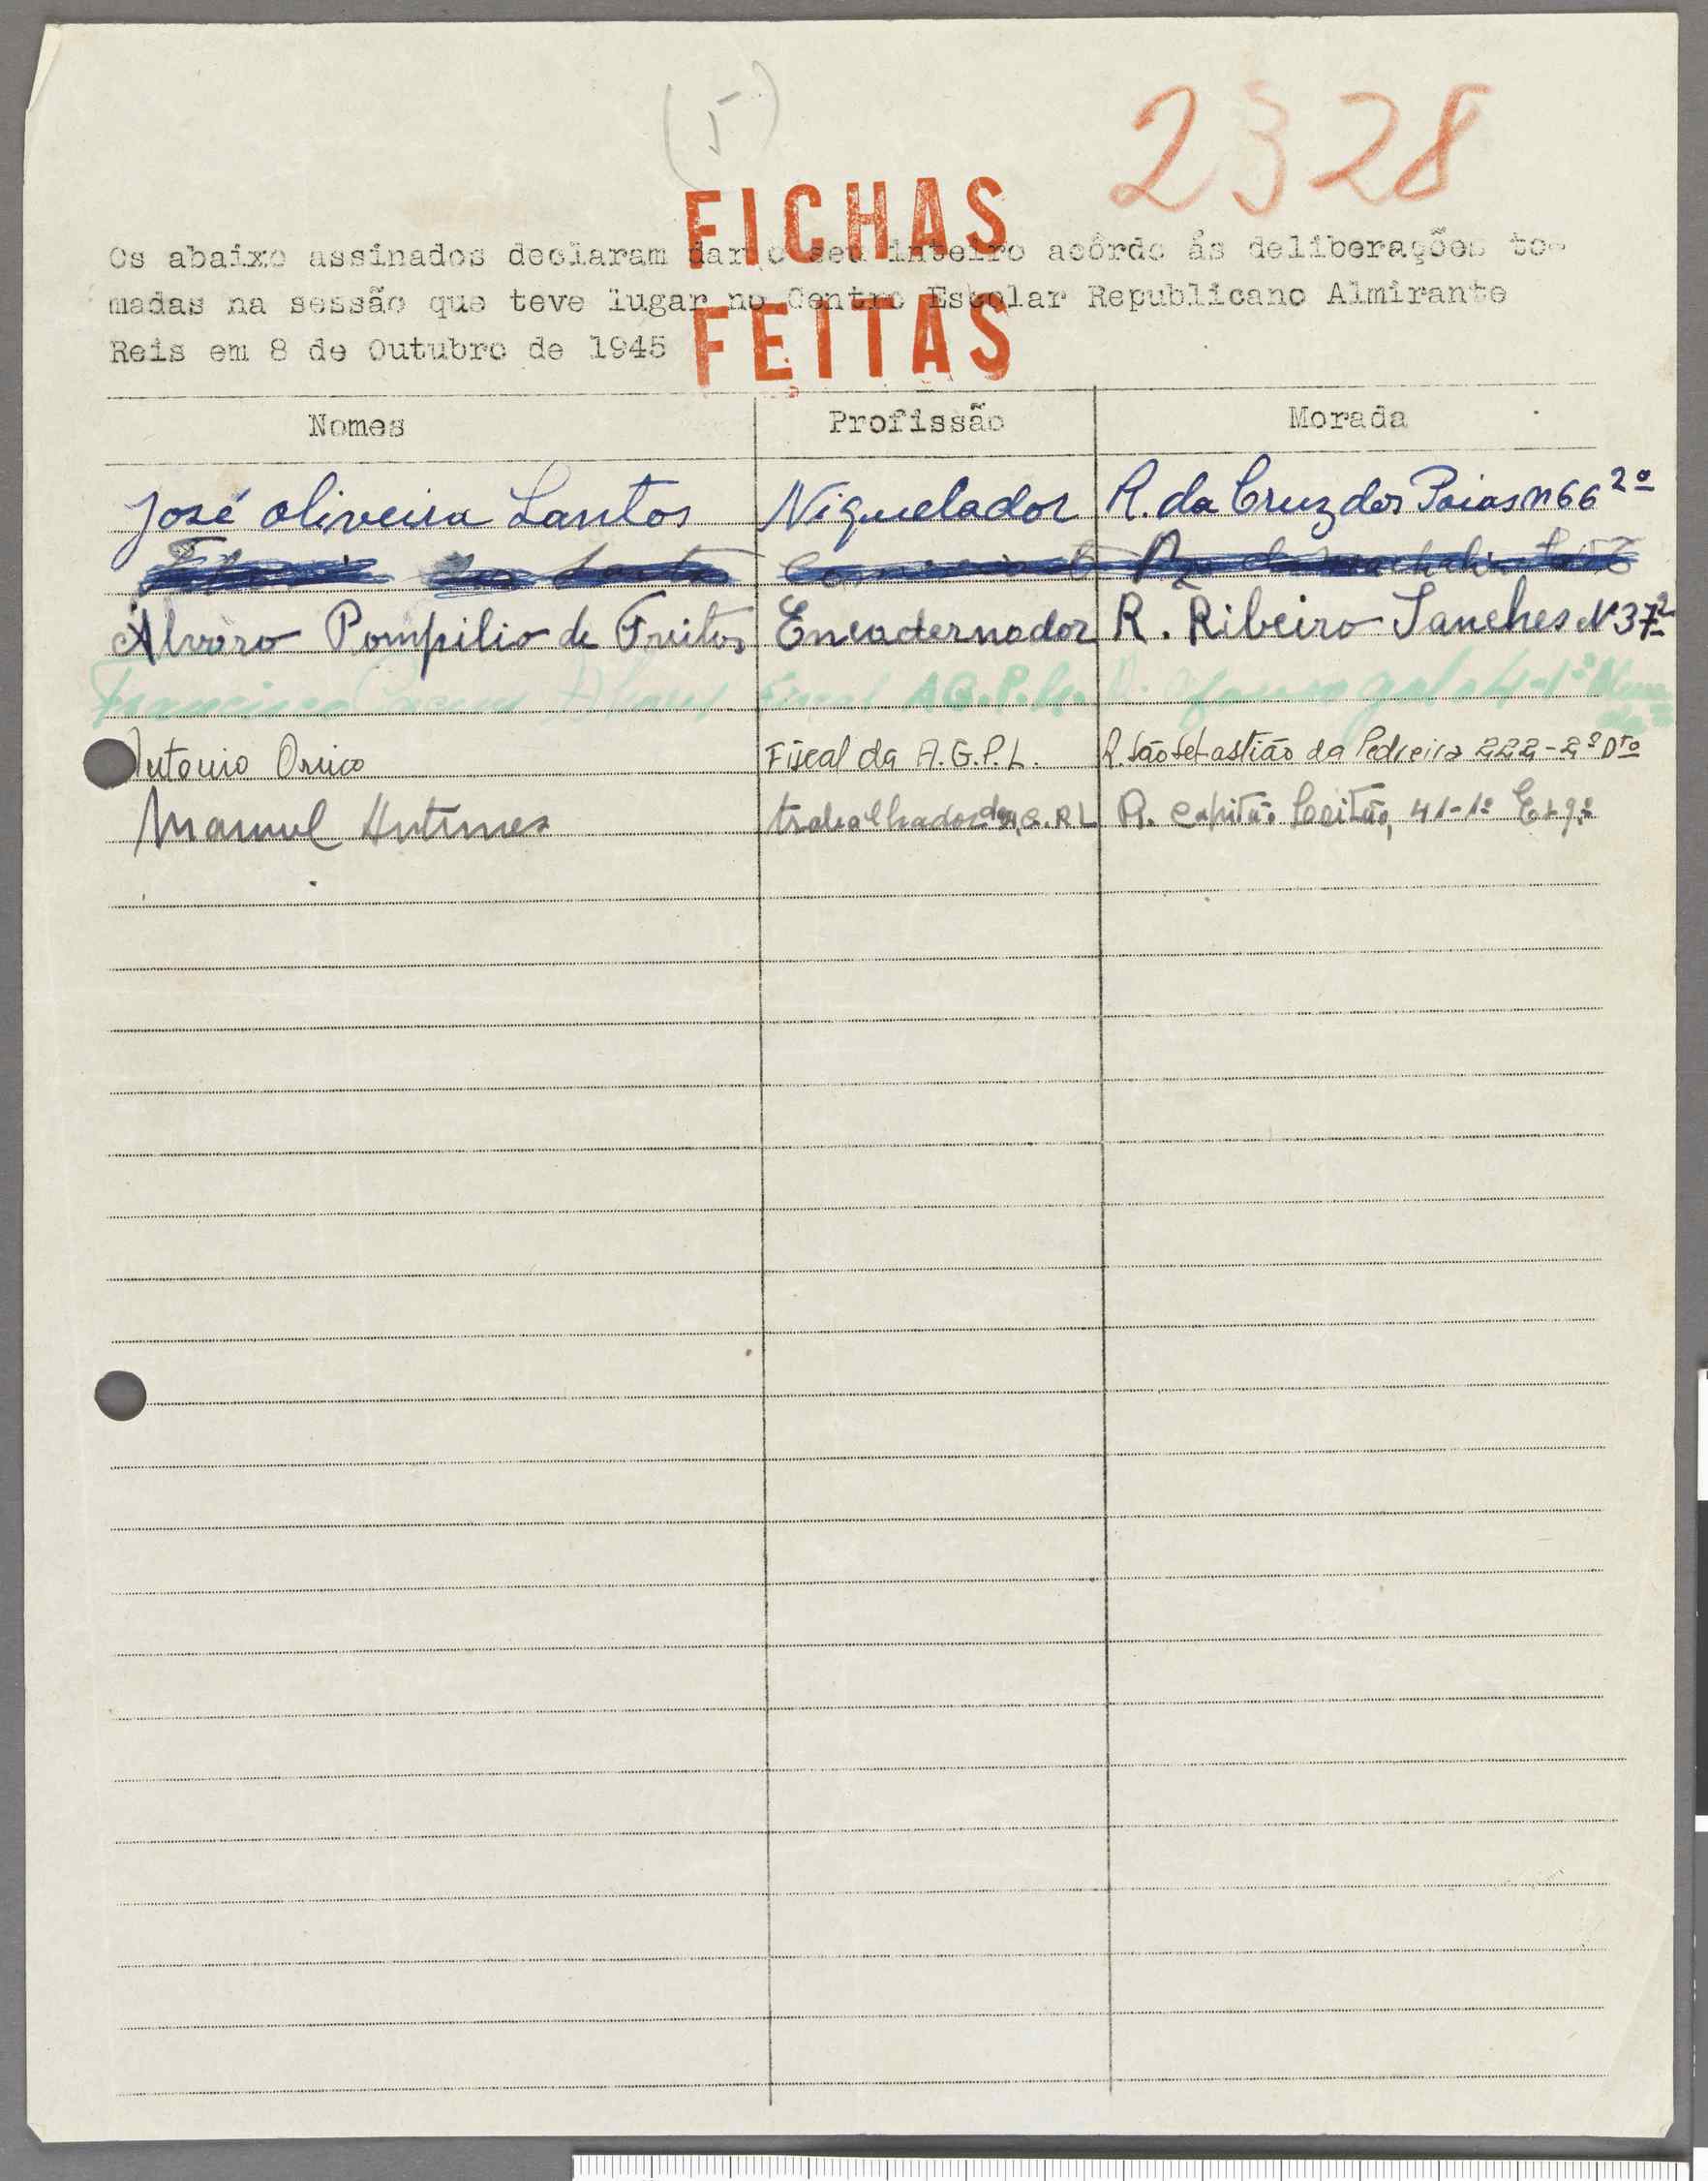 (5)
2328
FICHAS
Os abaixo assinados declaram dar o seu inteiro acôrdo ás deliberações to-
madas na sessão que teve lugar no Centro Escolar Republicano Almirante
FEITAS
Reis em 8 de Outubro de 1945
Nomes Profissão Morada
José Oliveira Santos Niquelador R. da Cruz dos Poiais nº 66 2º
Alvaro Pompilio de Freitas Encadernador R. Ribeiro Sanches Nº 37 2º
Francisco A.G.P.L. 4-1º
Antonio Fiscal da A.G.P.L. R. São Sebastião da Pedreira 222-2º Dtº
Manuel Antunes trabalhador da A.G.P.L R. Capitão Leitão, 41-1º Esqº